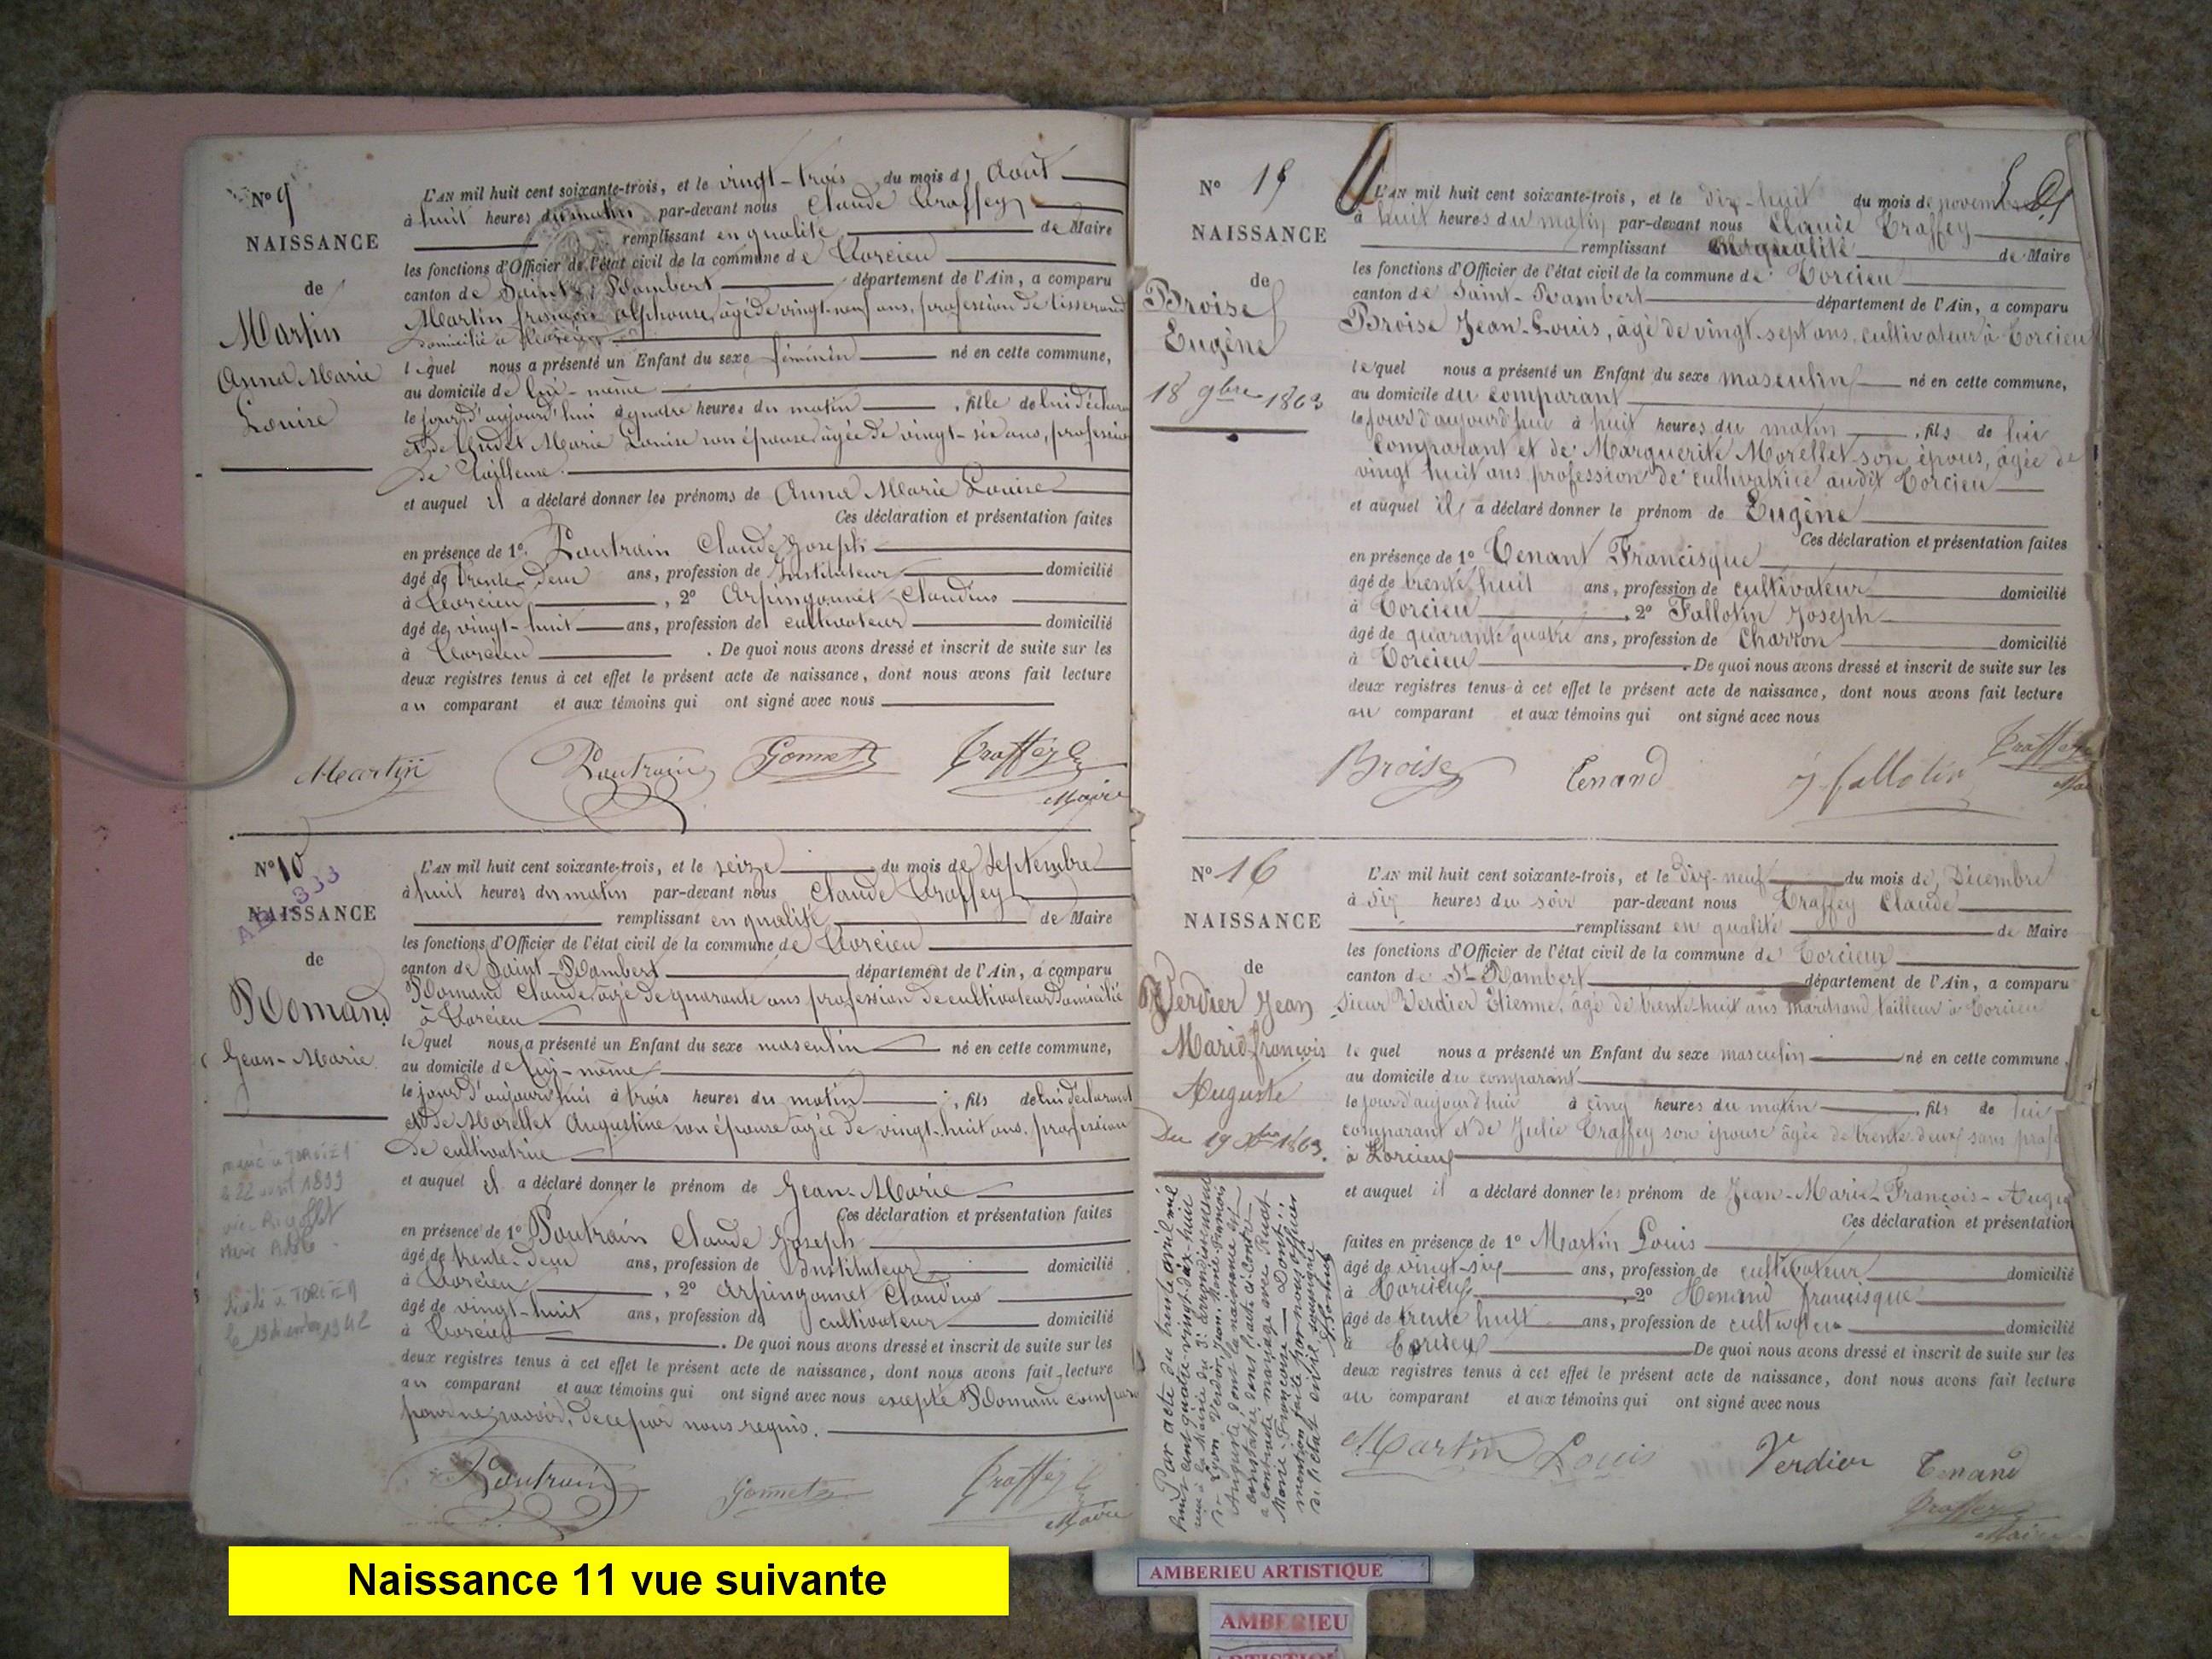 N° 9
NAISSANCE
de
Martin
Anna Marie
Louise
L'AN mil huit cent soixante-trois, et le vingt-trois du mois d' Août
à huit heures du matin par-devant nous Claude Traffey
remplissant en qualité de Maire
les fonctions d'Officier de l'état civil de la commune de Torcieu
canton de Saint-Rambert département de l'Ain, a comparu
Martin françois alphonse, âgé de vingt-neuf ans, profession de tisserand
domicilié à Torcieu
lequel nous a présenté un Enfant du sexe féminin né en cette commune,
au domicile de lui-même
le jour d'aujourd'hui à quatre heures du matin, fille de lui déclarant
et de Marie Louise son épouse âgée de vingt-six ans, profession
de Tailleuse.
et auquel il a déclaré donner les prénoms de Anna Marie Louise
Ces déclaration et présentation faites
en présence de 1° Poutrain Claude Joseph
âgé de trente-deux ans, profession de Instituteur domicilié
à Torcieu, 2° Arpingonnet Claudius
âgé de vingt-huit ans, profession de cultivateur domicilié
à Torcieu. De quoi nous avons dressé et inscrit de suite sur les
deux registres tenus à cet effet le présent acte de naissance, dont nous avons fait lecture
au comparant et aux témoins qui ont signé avec nous
Martin Poutrain Gonnet Traffey Cl
Maire
N° 10
NAISSANCE
de
Romand
Jean-Marie
marié à TORCIEU
le 22 avril 1899
avec
Marie
décédé à TORCIEU
le 19 décembre 1942
L'AN mil huit cent soixante-trois, et le seize du mois de Septembre
à huit heures du matin par-devant nous Claude Traffey
remplissant en qualité de Maire
les fonctions d'Officier de l'état civil de la commune de Torcieu
canton de Saint-Rambert département de l'Ain, a comparu
Romand Claude âgé de quarante ans profession de cultivateur domicilié
à Torcieu
lequel nous a présenté un Enfant du sexe masculin né en cette commune,
au domicile de lui-même
le jour d'aujourd'hui à trois heures du matin, fils de lui déclarant
et de Morellet Augustine son épouse âgée de vingt-huit ans, profession
de cultivatrice
et auquel il a déclaré donner le prénom de Jean-Marie
Ces déclaration et présentation faites
en présence de 1° Poutrain Claude Joseph
âgé de trente-deux ans, profession de Instituteur domicilié
à Torcieu, 2° Arpingonnet Claudius
âgé de vingt-huit ans, profession de cultivateur domicilié
à Torcieu. De quoi nous avons dressé et inscrit de suite sur les
deux registres tenus à cet effet le présent acte de naissance, dont nous avons fait lecture
au comparant et aux témoins qui ont signé avec nous excepté Romand compara
pour ne savoir, de ce par nous requis.
Poutrain Gonnet Traffey Cl
Maire
N° 15
NAISSANCE
de
Broise
Eugène
18 9bre 1863
L'AN mil huit cent soixante-trois, et le dix-huit du mois de novembre
à huit heures du matin par-devant nous Claude Traffey
remplissant en qualité de Maire
les fonctions d'Officier de l'état civil de la commune de Torcieu
canton de Saint-Rambert département de l'Ain, a comparu
Broise Jean-Louis, âgé de vingt-sept ans, cultivateur à Torcieu
lequel nous a présenté un Enfant du sexe masculin né en cette commune,
au domicile du comparant
le jour d'aujourd'hui à huit heures du matin, fils de lui
comparant et de Marguerite Morellet son épous, âgée de
vingt huit ans profession de cultivatrice audit Torcieu
et auquel il a déclaré donner le prénom de Eugène
Ces déclaration et présentation faites
en présence de 1° Tenant Francisque
âgé de trente huit ans, profession de cultivateur domicilié
à Torcieu, 2° Fallotin Joseph
âgé de quarante quatre ans, profession de charron domicilié
à Torcieu. De quoi nous avons dressé et inscrit de suite sur les
deux registres tenus à cet effet le présent acte de naissance, dont nous avons fait lecture
au comparant et aux témoins qui ont signé avec nous
Broise Tenand J. fallotin Traffey
N° 16
NAISSANCE
de
Verdier Jean
Marie françois
Auguste
Du 19 Xbre 1863.
L'AN mil huit cent soixante-trois, et le dix-neuf du mois de Décembre
à six heures du soir par-devant nous Traffey Claude
remplissant en qualité de Maire
les fonctions d'Officier de l'état civil de la commune de Torcieu
canton de St-Rambert département de l'Ain, a comparu
Sieur Verdier Etienne, âgé de trente-huit ans marchand tailleur à Torcieu
lequel nous a présenté un Enfant du sexe masculin né en cette commune,
au domicile du comparant
le jour d'aujourd'hui à cinq heures du matin, fils de lui
comparant et de Julie Traffey son épouse âgée de trente-deux sans prof
à Torcieu
et auquel il a déclaré donner les prénom de Jean-Marie-François-Augu
Ces déclaration et présentation
faites en présence de 1° Martin Louis
âgé de vingt-six ans, profession de cultivateur domicilié
à Torcieu, 2° Tenand francisque
âgé de trente huit ans, profession de cultivateur domicilié
à Torcieu De quoi nous avons dressé et inscrit de suite sur les
deux registres tenus à cet effet le présent acte de naissance, dont nous avons fait lecture
au comparant et aux témoins qui ont signé avec nous
Martin Louis Verdier Tenand
Traffey
Maire
Par acte du trente avril mil
huit cent quatre-vingt-dix-huit
reçu à la Mairie du 3e arrondissement
de Lyon, Verdier Jean-Marie-François
Auguste, dont la naissance est
constatée dans l'acte ci-contre
a contracté mariage avec
Marie-Françoise Dont
mention faite par nous officier
de l'état civil soussigné
Naissance 11 vue suivante
AMBERIEU ARTISTIQUE
AMBERIEU
ARTISTIQUE